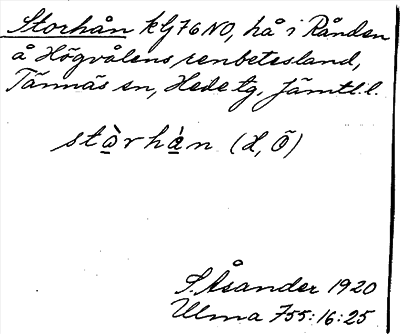 Storhån kG76NO, hå i Rånden
å Högvålens renbetesland,
Tännäs sn, Hede tg, Jämtl. l.
stò̱rhå̱n (L, Õ)
S. Åsander 1920
Ulma 755:16:25